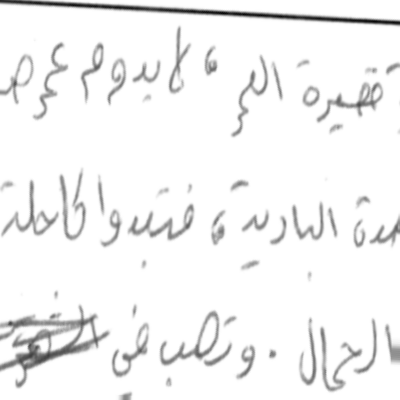 قصيرة العمر، لا يدوم عمر
البادية، فتبدوا كاحلة
الرحال. وتصب في